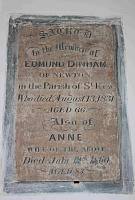 SACRED
To the Memory of
EDMUND DINHAM
OF NEWTON
in the Parish of St Kew
Who died August 13 1831
AGED 66
Also of
ANNE
WIFE OF THE ABOVE
Died July 1840
AGED